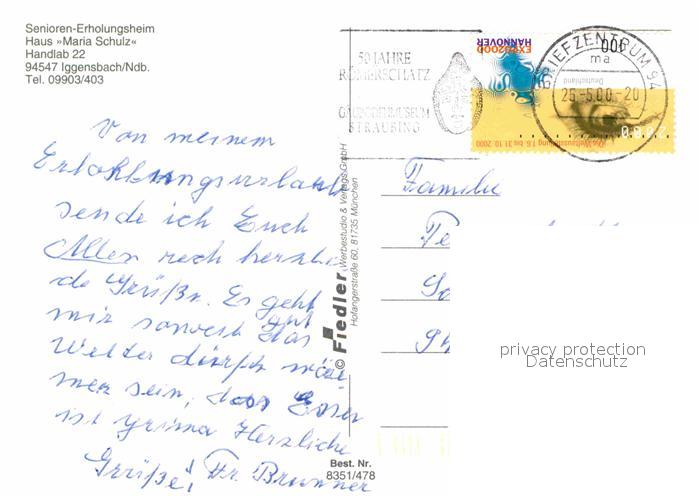 Senioren-Erholungsheim
Haus »Maria Schulz«
Handlab 22
94547 Iggensbach/Ndb.
Tel. 09903/403
50 JAHRE
RÖMERSCHATZ
GÄUBODENMUSEUM
STRAUBING
EXPO2000
HANNOVER
BRIEFZENTRUM 94
ma
25.-5.00.-20
100
Deutschland
Die Weltausstellung 1.6. bis 31.10.2000
Von meinem
Erholungsurlaub
sende ich Euch
Allen recht herzli
de Grüße. Es geht
mir soweit gut
Das
Wetter dürfte wär
mer sein, das Essen
ist prima Herzliche
Grüße! Fr. Brunner
© Fiedler Werbestudio & Verlags GmbH
Hofangerstraße 60, 81735 München
Best. Nr.
8351/478
Familie
Te
So
Ph
privacy protection
Datenschutz